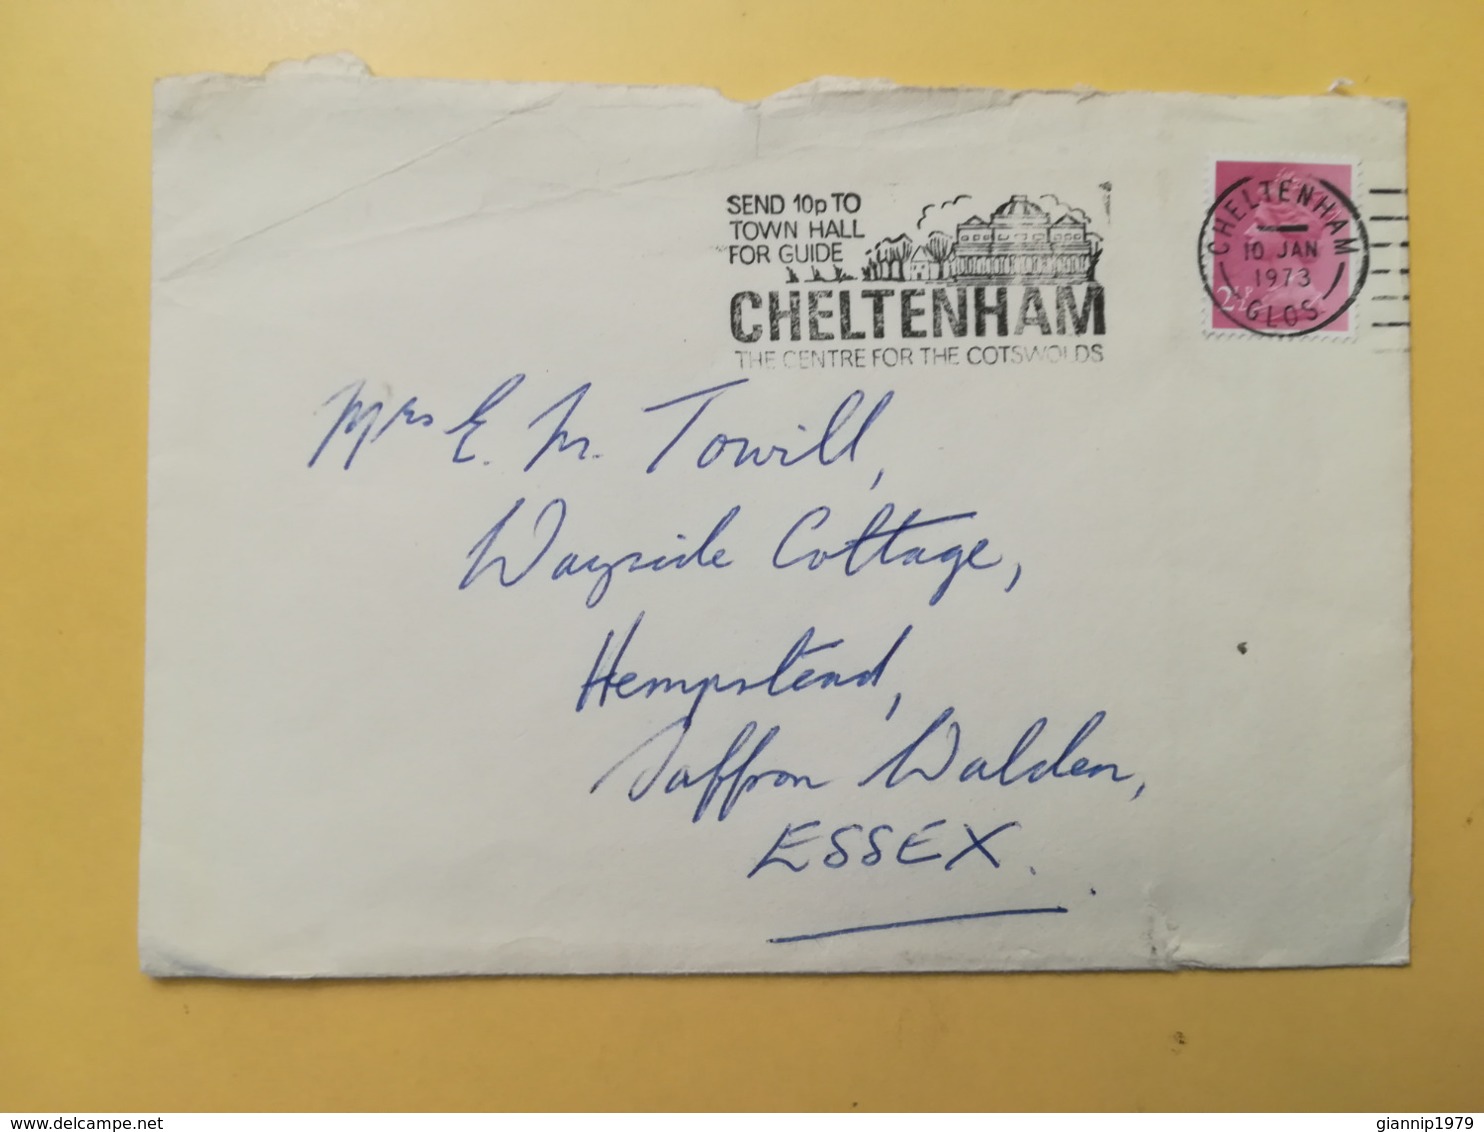 SEND 10p TO
TOWN HALL
FOR GUIDE
CHELTENHAM
THE CENTRE FOR THE COTSWOLDS
CHELTENHAM
10 JAN
1973
GLOS.
2½P
Mrs E. M. Towill,
Wayside Cottage,
Hempstead,
Saffron Walden,
ESSEX.
delcampe.net
giannip1979